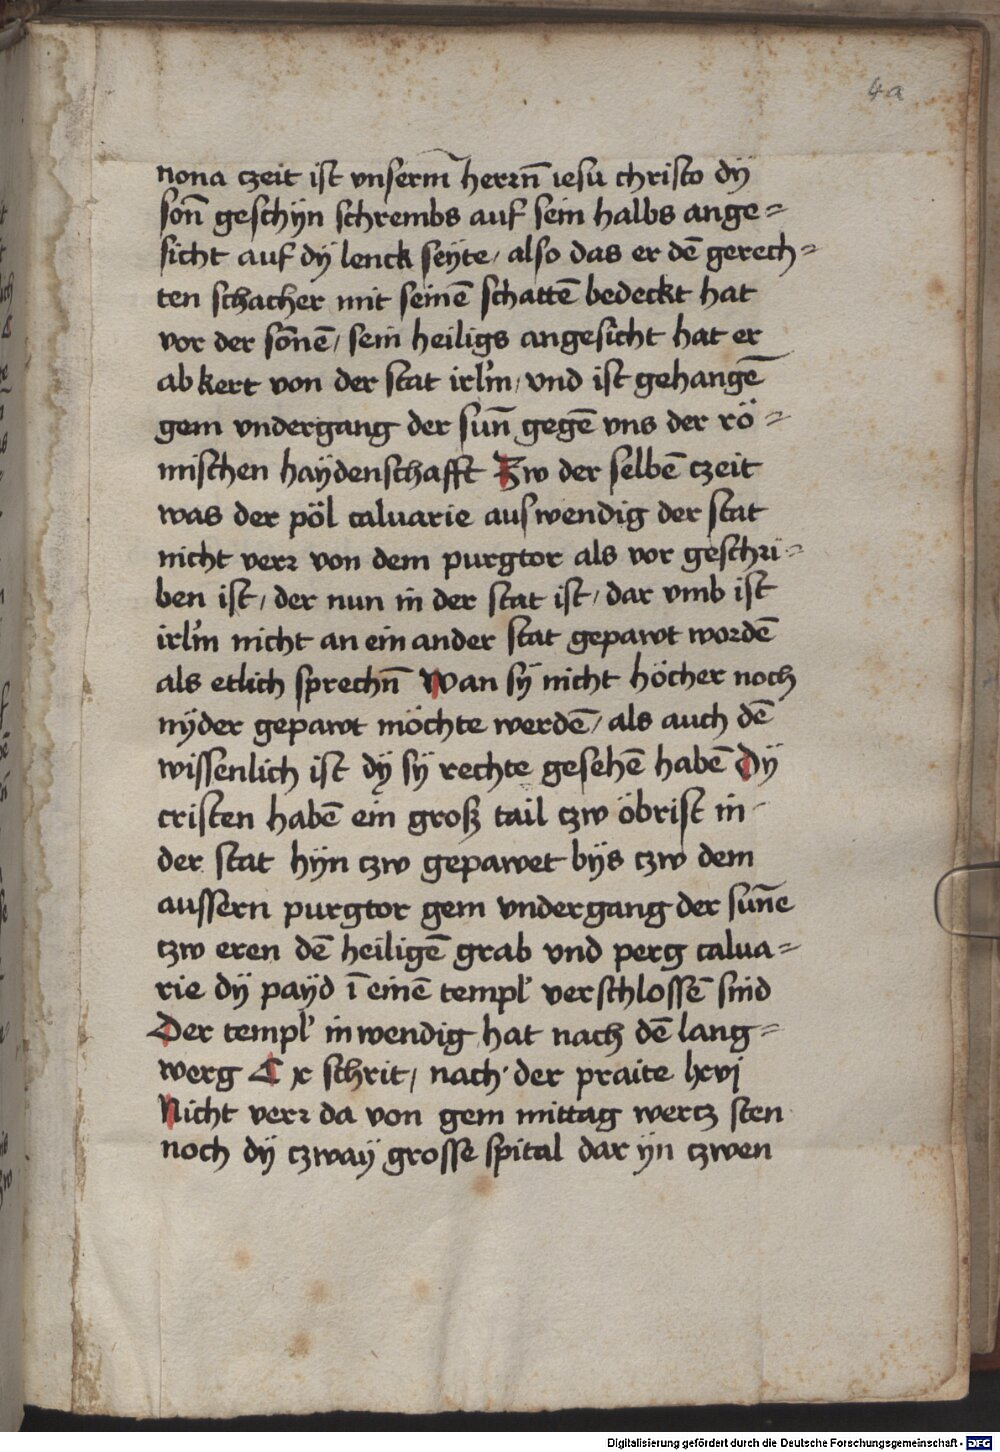 4a
nona czeit ist vnserm̄ herꝛn̄ iesu christo dÿ
son̄ geschÿn schrembs auf sein halbs ange=
sicht auf dÿ lenck seÿte / also das er dē gerech=
ten schacher mit seinē schattē bedeckt hat
vor der son̄ē / sein heiligs angesicht hat er
ab kert von der stat irl'm / vnd ist gehangē
gem vndergang der sun̄ gegē vns der rö=
mischen haÿdenschafft Zw der selbē czeit
was der pöl caluarie auswendig der stat
nicht verꝛ von dem purgtor als vor geschri=
ben ist / der nun in der stat ist / dar vmb ist
irl'm nicht an ein ander stat gepawt wordē
als etlich sprechn̄ Wan sÿ nicht höcher noch
nÿder gepawt möchte werdē / als auch dē
wissenlich ist dÿ sÿ rechte gesehē habē Dÿ
cristen habē ein groß tail czw öbrist in
der stat hÿn czw gepawet bÿs czw dem
aussern purgtor gem vndergang der sun̄e
czw eren dē heiligē grab vnd perg calua=
rie dÿ paÿd ī einē templ' verschlossē sind
Der templ' inwendig hat nach dē lang=
werg C x schrit / nach der praite lxvj
Nicht verꝛ da von gem mittag wertz sten
noch dÿ czwaÿ grosse spital dar ÿn czwen
Digitalisierung gefördert durch die Deutsche Forschungsgemeinschaft - DFG